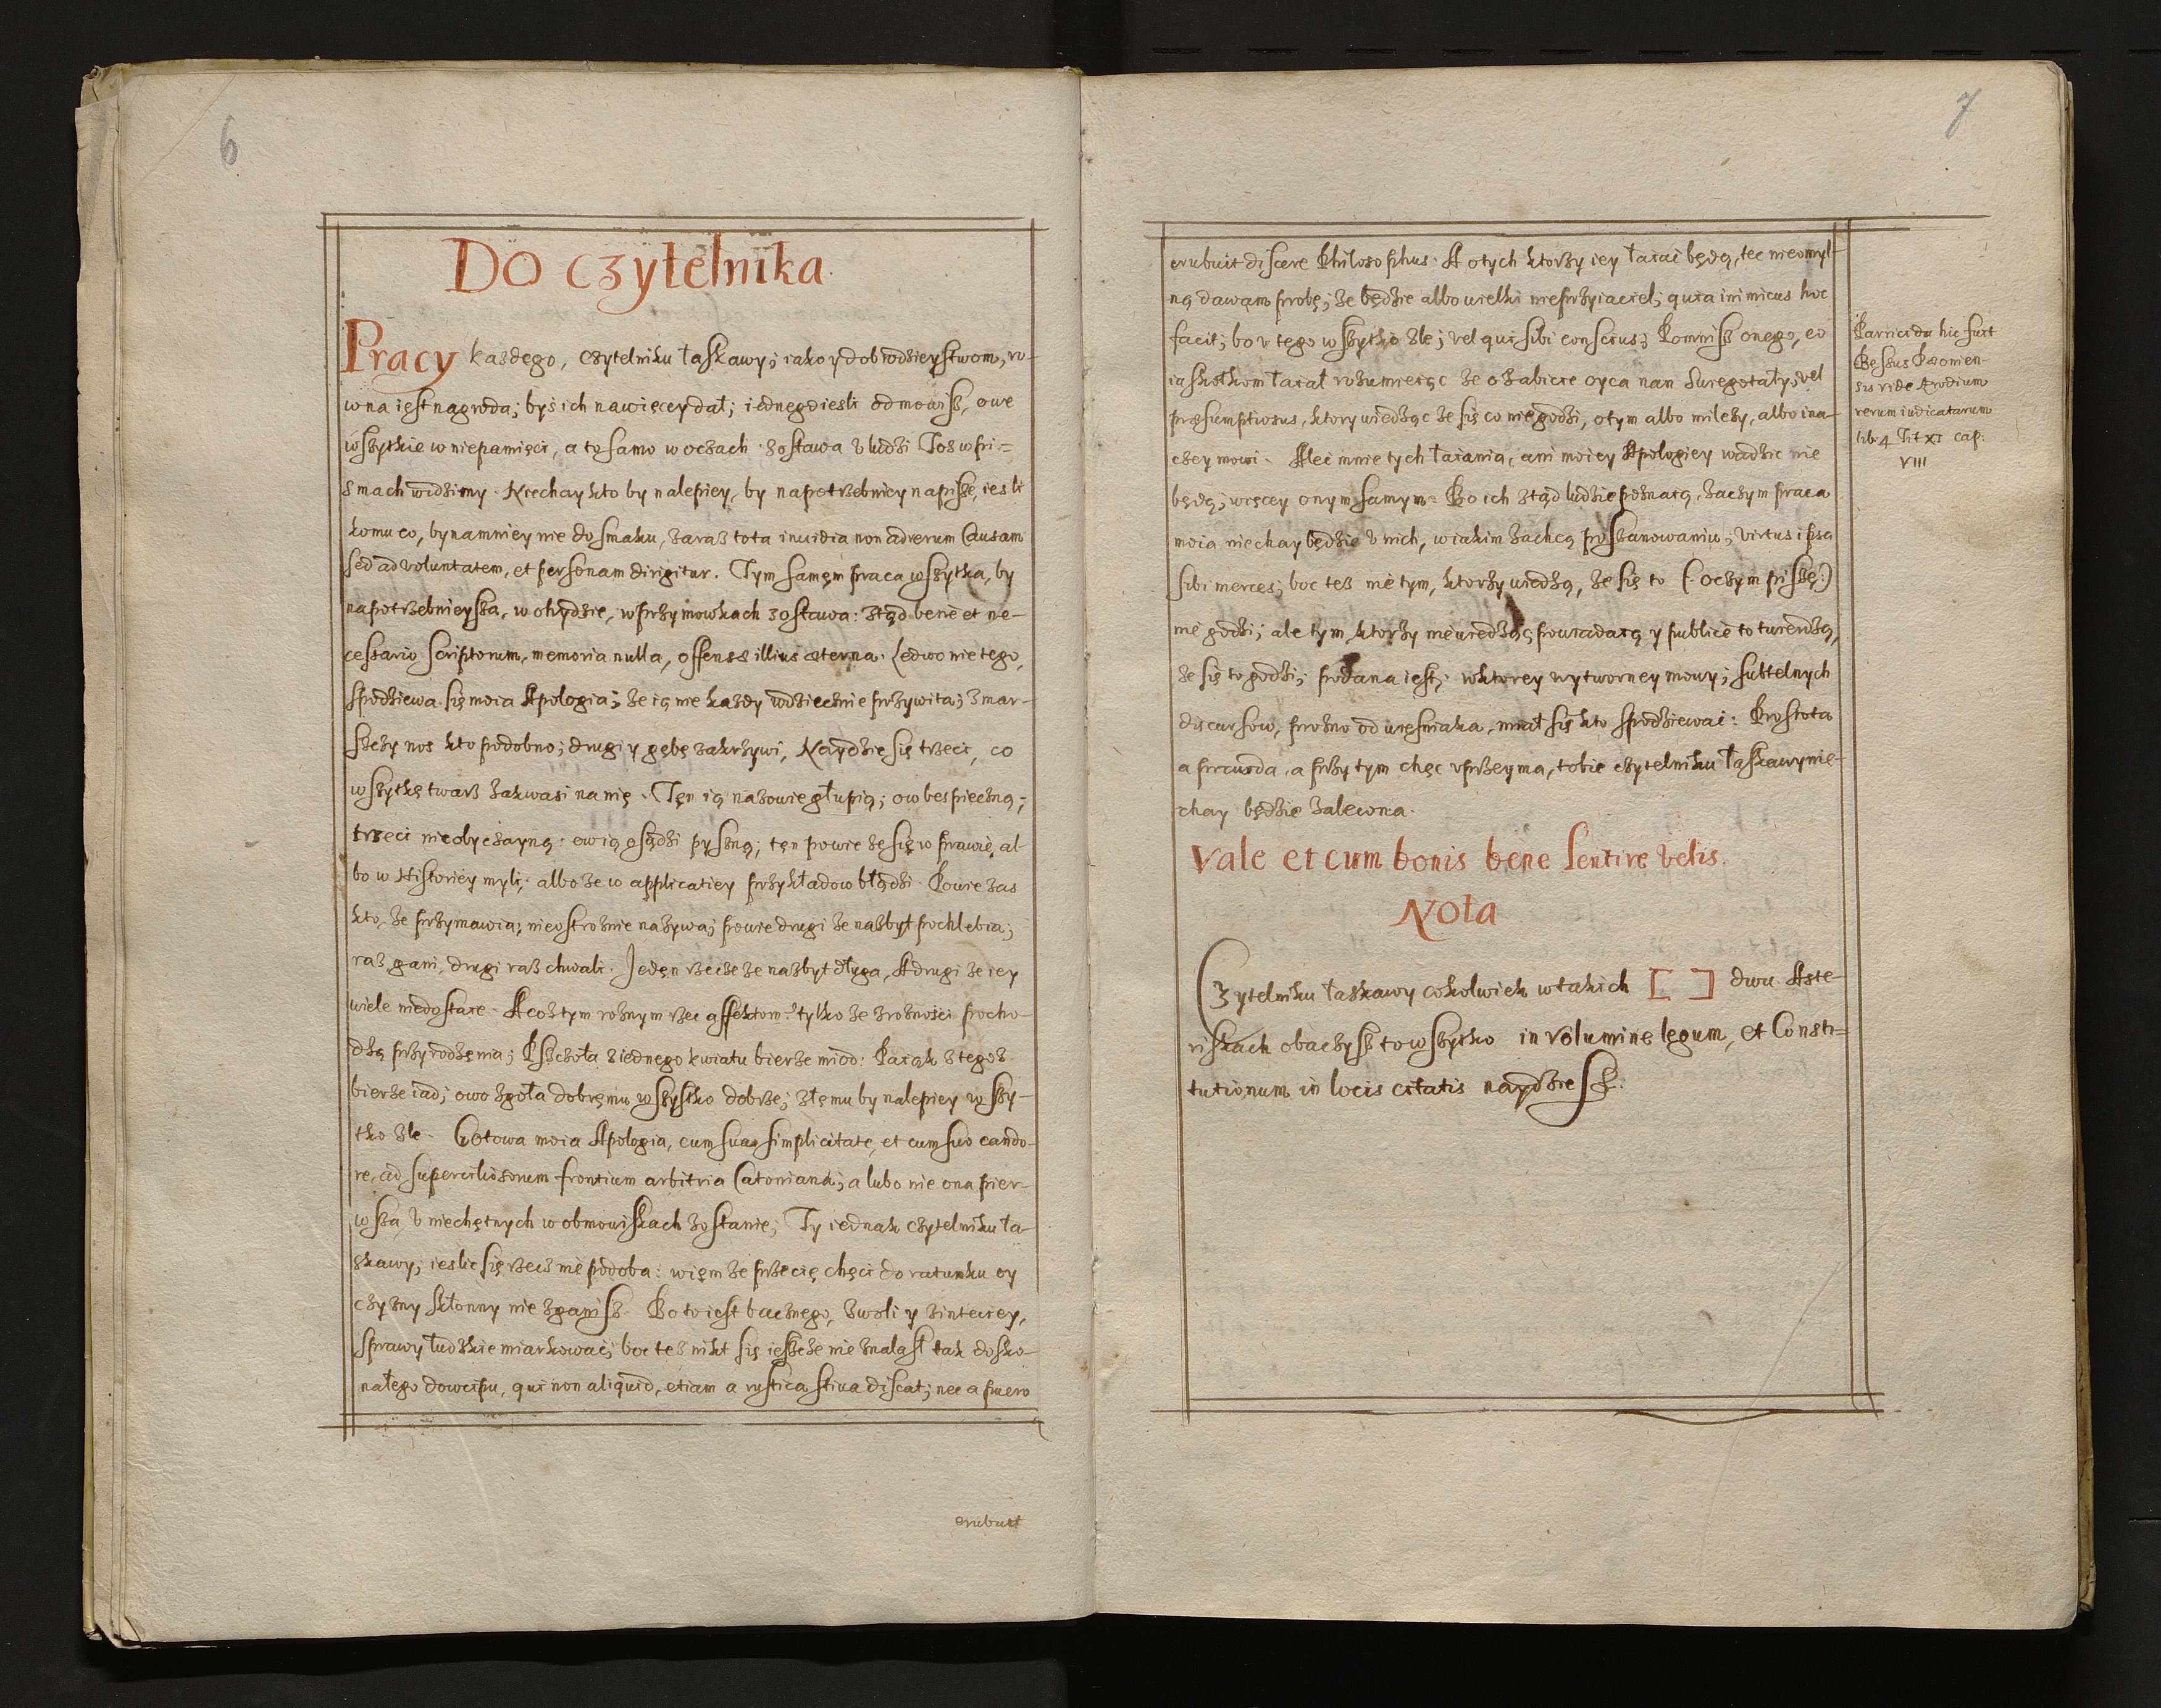 6
Do czytelnika.
Pracy kazdego, czytelniku łaskawy; iako y dobrodzieystwom, ro-
wna iest nagroda; byś ich nawięcey dał; iednego iesli odmowisz, owe
wszytkie w niepamięci, a to samo w oczach zostawa v ludzi Toz w pi-
smach widzimy. Niechay kto by nalepiey, by napotrzebniey napisze, iesli
komu co, bynamniey nie do smaku, zaraz tota inuidia non ad rerum Causam
sed ad voluntatem, et personam dirigitur. Tym samęm praca wszytka, by
napotrzebnieysza, w ohydzie, w przymowkach zostawa: ztąd benè et ne-
cessario scriptorum, memoria nulla, offensæ illius æterna. Ledwo nie tego,
spodziewa się moia Apologia; ze ią nie kazdy wdziecznie przywita; zmar-
szczy nos kto podobno; drugi y gębę zakrzywi, Naydzie się trzeci, co
wszytkę twarz zakwasi na nię. Tęn ią nazowie głupią; ow bespieczną;
trzeci nieobyczayną. ow ią osądzi pyszną; tęn powie ze się w prawie, al-
bo w Historiey myli; albo ze w applicatiey przykładow błądzi. Powie zas
kto, ze przymawia; nieostroznie nazywa; powie drugi ze nazbyt pochlebia;
raz gani, drugi raz chwali. Jedęn rzecze ze nazbyt długa, A drugi ze iey
wiele niedostaie. A coz tym roznym rzec affektom? tylko ze z roznosci pocho-
dzą przyrodzęnia; Pszczoła z iednego kwiatu bierze miod: Paiąk z tegoz
bierze iad; owo zgoła dobręmu wszystko dobrze; złęmu by nalepiey wszy-
tko zle. Gotowa moia Apologia, cum sua simplicitate, et cum suo cando-
re, ad superciliosorum frontium arbitria Catoniana; a lubo nie ona pier-
wsza, v niechętnych w obmowiskach zostanie; Ty iednak czytelniku ła-
skawy; ieslic się rzecz nie podoba: więm ze przecię chęci do ratunku oy
czyzny skłonny nie zganisz. Bo to iest bacznego, z woli y z inteciey,
sprawy ludzkie miarkować; boc tez nikt się ieszcze nie znalasł tak dosko-
nałego dowcipu, qui non aliquid, etiam a rustica stiua discat; nec a puero
erubuit
7
erubuit discere Philosophus. A o tych ktorzy iey łaiać będą, tęc nieomyl-
ną dawam probę; ze będzie albo wielki nieprzyiaciel; quia inimicus hoc
facit; bo v tego wszytko zle; vel qui sibi conscius; Pomnisz onego, co
iaskołkom łaiał rozumieiąc ze o zabicie oyca nan swiegotały; vel
præsumptiosus, ktory wiedząc ze się co nie godzi, o tym albo milczy, albo ina-
czey mowi. Aleć mnie tych łaiania, ani moiey Apologiey wadzic nie
będą; więcey onym samym. Bo ich ztąd ludzie poznaią, zaczym praca
moia niechay będzie v nich, w iakim zachcą poszanowaniu; virtus ipsa
sibi merces; boc tez nie tym, ktorzy wiedzą, ze się to (. o czym piszę.)
nie godzi; ale tym ktorzy nie wiedząc powiadaią y publicè to twierdzą,
ze się to godzi; podana iest; w ktorey wytworney mowy; subtelnych
discursow, prozno od wieśniaka, miał się kto spodziewać: Prostota
a prawda, a przy tym chęc vprzeyma, tobie czytelniku łaskawy nie-
chay będzie zalecona.
Parricida hic fuit
Bessus Pæonien-
sis vide Ærodium
rerum iudicatarum
lib. 4 Tit XI cap:
VIII
Vale et cum bonis bene sentire velis.
Nota
Czytelniku łaskawy cokolwiek w takich [ ] dwu Aste-
riskach obaczysz to wszytko in volumine legum, et Consti-
tutionum in locis citatis naydziesz.